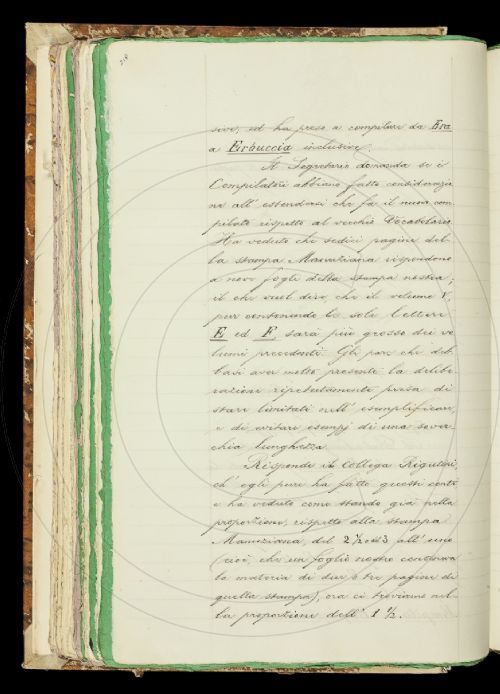 219
sivo, ed ha preso a compilare da Era
a Erbuccia inclusive.
Il Segretario domanda se i
Compilatori abbiano fatto considerazio
ne all' estendersi che fa il nuovo com
pilato rispetto al vecchio Vocabolario.
Ha veduto che sedici pagine del-
la stampa Manuziana rispondono
a nove fogli della stampa nostra;
il che vuol dire, che il volume V,
pur contenendo le sole lettere
E ed F, sarà più grosso dei vo
lumi precedenti. Gli pare che deb-
basi aver molto presente la delibe-
razione ripetutamente presa di
stare limitati nell' esemplificare,
e di evitare esempj di una sover-
chia lunghezza.
Risponde il Collega Rigutini
ch' egli pure ha fatto questi conti
e ha veduto come stando già nella
proporzione, rispetto alla stampa
Manuziana, del 2 1/2 o del 3 all' uno
(cioè, che un foglio nostro conteneva
la materia di due o tre pagine di
quella stampa), ora ci troviamo nel-
la proporzione dell' 1 1/2.